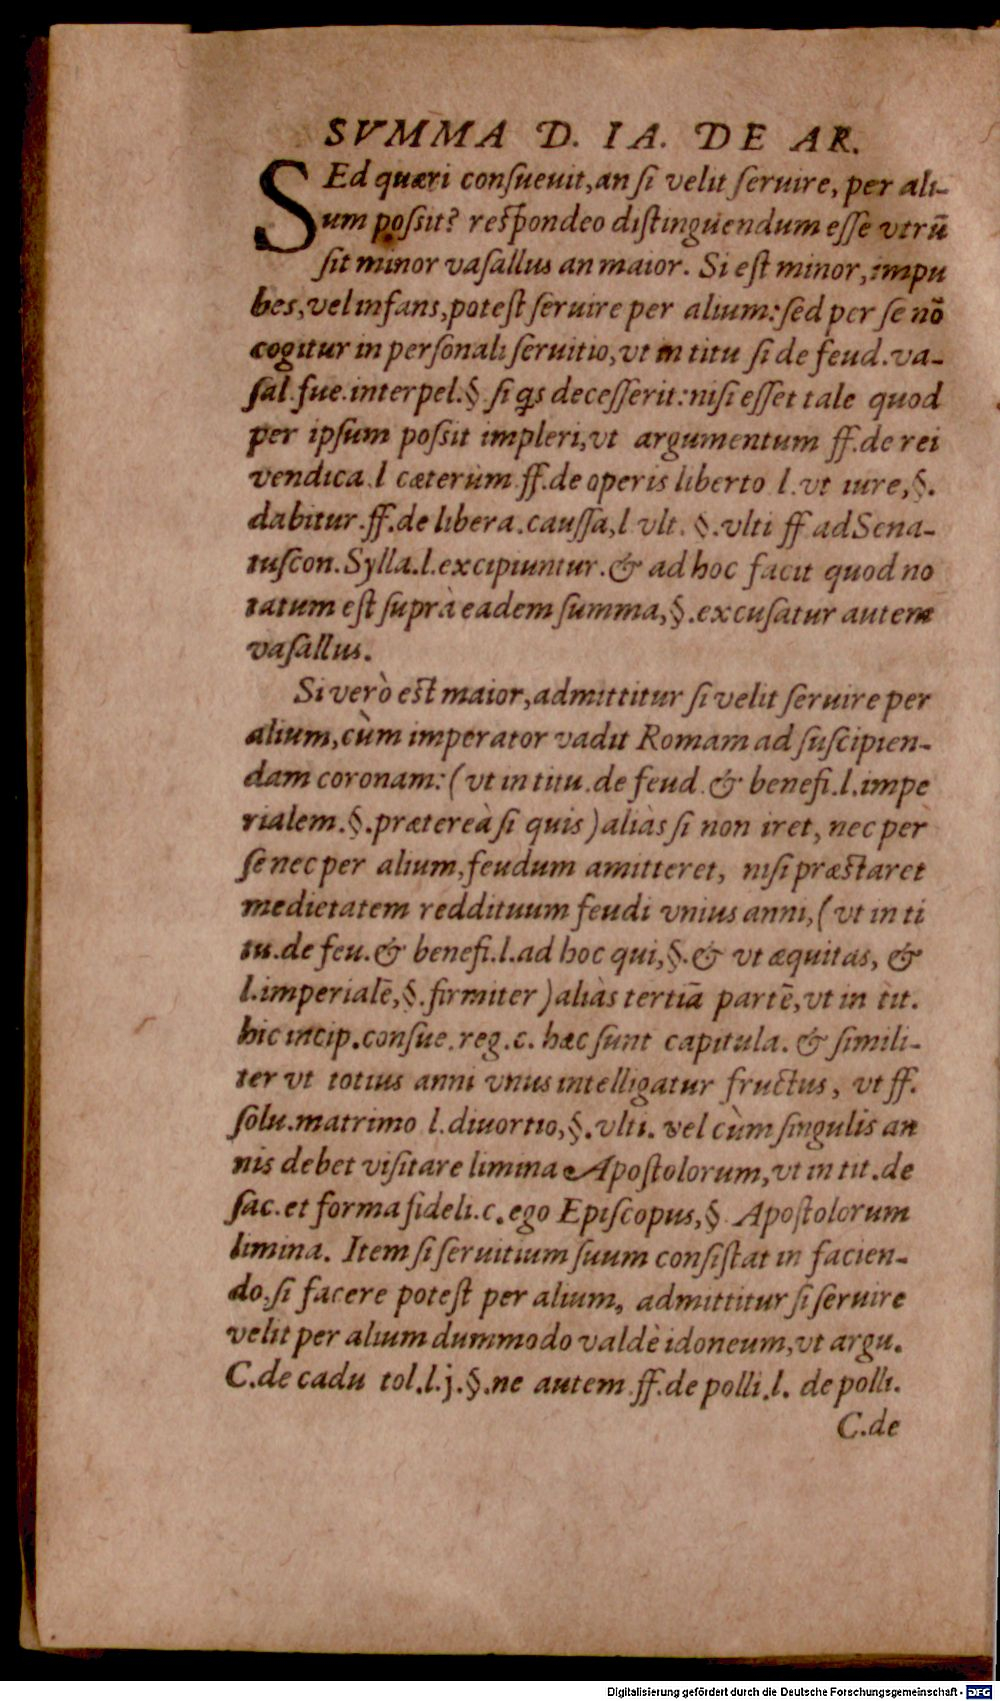 SVMMA D. IA. DE AR.
SEd quæri conſueuit, an ſi velit ſeruire, per ali-
um poſsit? reſpondeo diſtinguendum eſſe vtrū
ſit minor vaſallus an maior. Si eſt minor, impu
bes, vel infans, poteſt ſeruire per alium: ſed per ſe nō
cogitur in perſonali ſeruitio, vt in titu ſi de feud. va-
ſal. fue. interpel. §. ſi qs deceſſerit: niſi eſſet tale quod
per ipſum poſsit impleri, vt argumentum ff. de rei
vendica. l cæterùm. ff. de operis liberto l. vt iure, §.
dabitur. ff. de libera. cauſſa, l vlt. §. vlti ff ad Sena-
tuſcon. Sylla. l. excipiuntur. & ad hoc facit quod no
tatum eſt ſuprà eadem ſumma, §. excuſatur autem
vaſallus.
Si verò eſt maior, admittitur ſi velit ſeruire per
alium, cùm imperator vadit Romam ad ſuſcipien-
dam coronam: (vt in titu. de feud. & benefi. l. impe
rialem. §. prætereà ſi quis) aliàs ſi non iret, nec per
ſe nec per alium, feudum amitteret, niſi præſtaret
medietatem reddituum feudi vnius anni, (vt in ti
tu. de feu. & benefi. l. ad hoc qui, §. & vt æquitas, &
l. imperialē, §. firmiter) aliàs tertiā partē, vt in tit.
hic incip. conſue. reg. c. hæc ſunt capitula. & ſimili-
ter vt totius anni vnus intelligatur fructus, vt ff.
ſolu. matrimo l. diuortio, §. vlti. vel cùm ſingulis an
nis debet viſitare limina Apoſtolorum, vt in tit. de
ſac. et forma fideli. c. ego Epiſcopus, §. Apoſtolorum
limina. Item ſi ſeruitium ſuum conſiſtat in facien-
do, ſi facere poteſt per alium, admittitur ſi ſeruire
velit per alium dummodo valdè idoneum, vt argu.
C. de cadu tol. l. j. §. ne autem. ff. de polli. l. de polli.
C. de
Digitalisierung gefördert durch die Deutsche Forschungsgemeinschaft - DFG